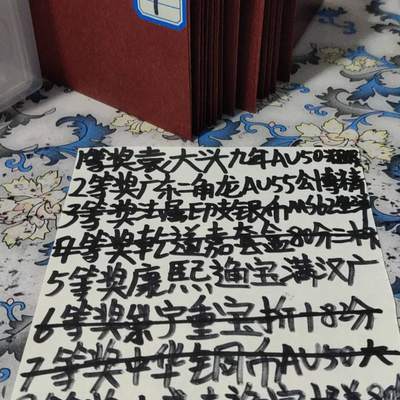 1等奖袁大头九年AU50
2等奖广东二角龙AU55公博精
3等奖法属印支银币MS62
4等奖乾道嘉套盒80分二枚
5等奖康熙渔宝满汉广
6等奖崇宁重宝折十82分
7等奖中华铜币AU50大